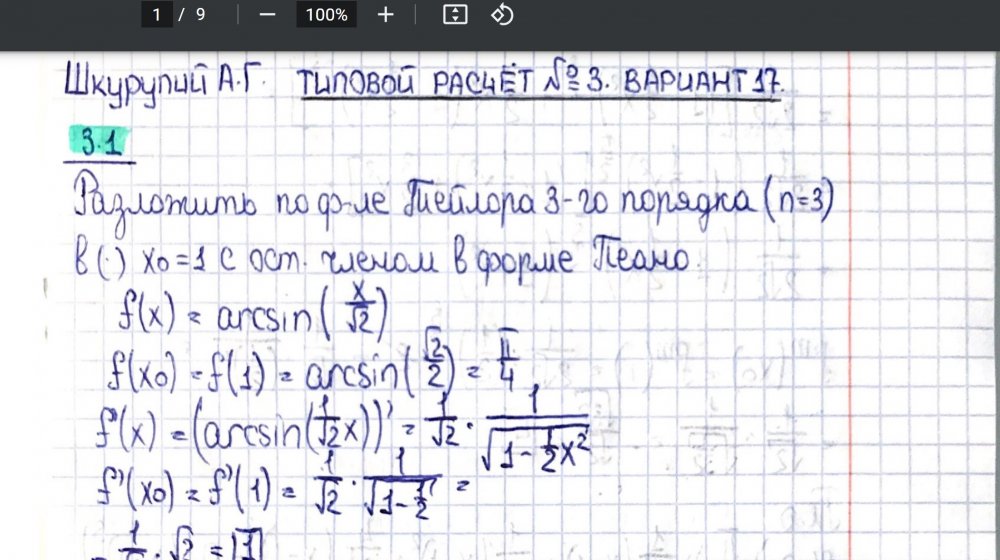 1 / 9 — 100% +
Шкурупий А.Г. ТИПОВОЙ РАСЧЁТ №3. ВАРИАНТ 17.
3.1
Разложить по ф-ле Тейлора 3-го порядка (n=3)
в (·) x₀ = 1 с ост. членом в форме Пеано.
f(x) = arcsin(x/√2)
f(x₀) = f(1) = arcsin(√2/2) = π/4
f'(x) = (arcsin(1/√2 x))' = 1/√2 · 1/√(1 - 1/2 x²)
f'(x₀) = f'(1) = 1/√2 · 1/√(1 - 1/2) =
= 1/ · √2 = 1